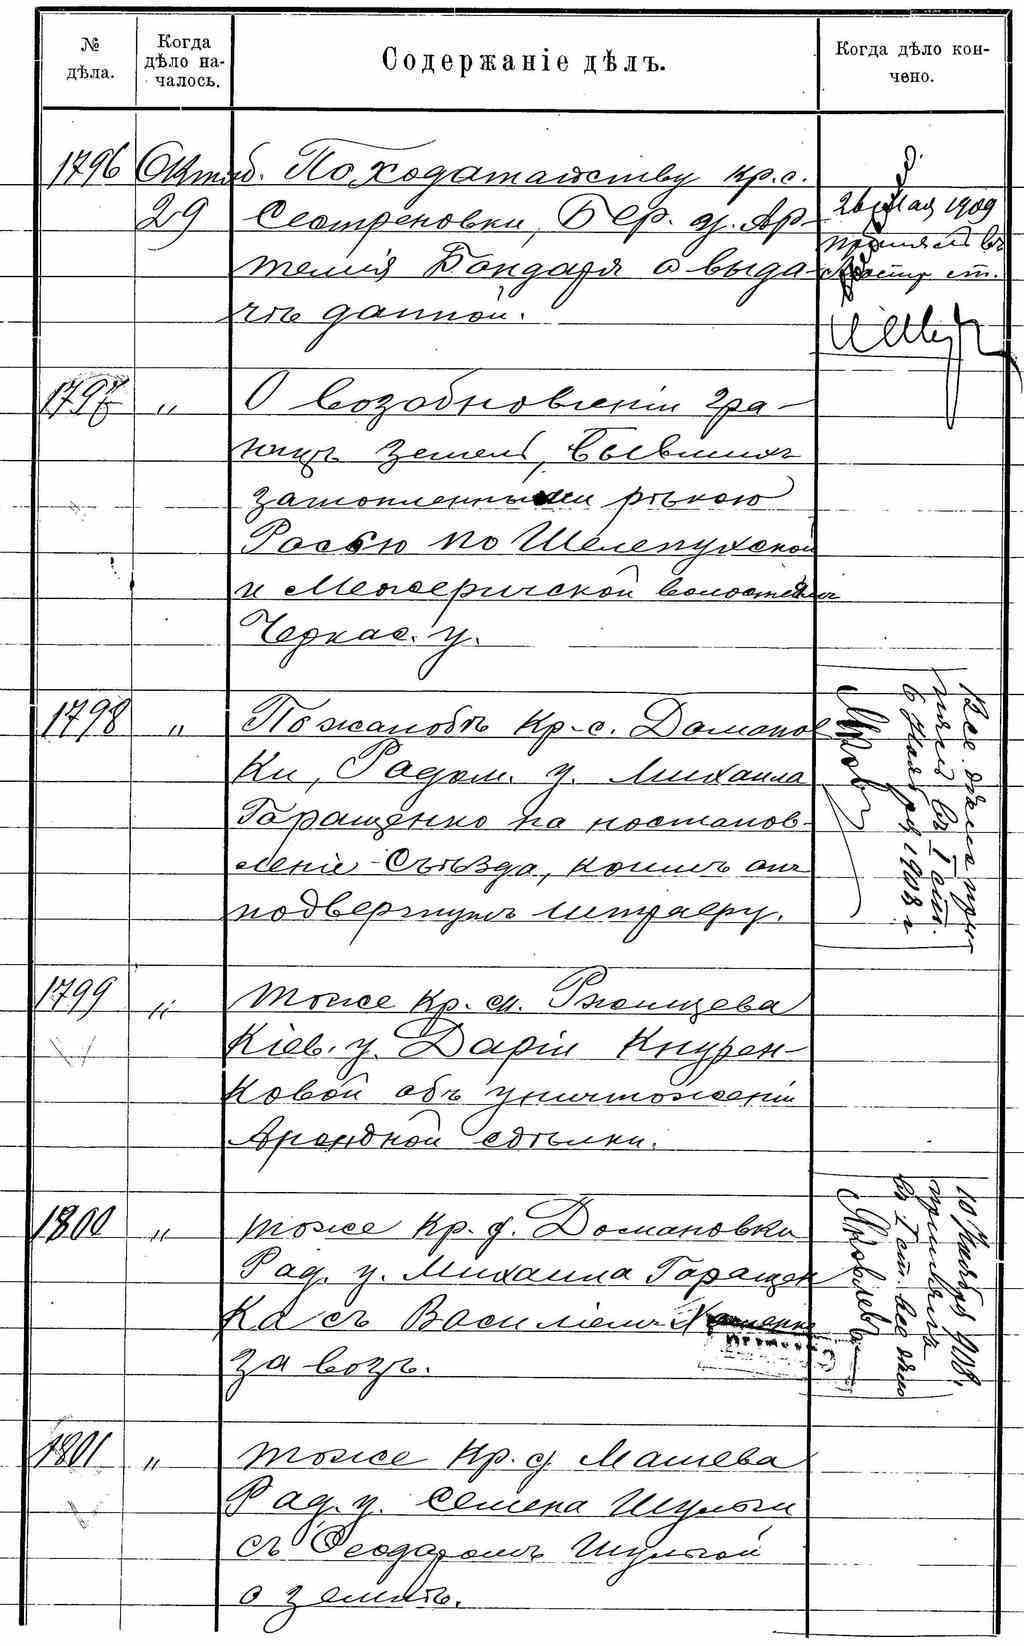 № дѣла.
Когда дѣло началось.
Содержаніе дѣлъ.
Когда дѣло кончено.
1796 Октяб. По ходатайству кр. с.
29 Сестреновки, Бер. у. Ар-
темія Бондаря о выда-
чѣ данной.
26 мая 1909
принялъ въ
ст.
1797 " О возобновленіи гра-
ницъ земель, бывшихъ
затопленными рѣкою
Росью по Шелепухской
и Межеричской волостямъ
Черкас. у.
1798 " По жалобѣ кр-с. Доманов
ки, Радом. у. Михаила
Геращенко на постанов-
леніе Съѣзда, коимъ онъ
подвергнутъ штрафу.
Все дѣло при
нялъ въ I ст.
6 Ноября 1908 г
1799 " тоже кр. м. Ржищева
Кіев. у. Даріи Кнурен-
ковой объ уничтоженіи
арендной сдѣлки.
1800 " тоже кр. д. Домановки
Рад. у. Михаила Геращен
ка съ Василіемъ
за возъ.
10 Ноября 1908.
принялъ
въ I ст. все дѣло
Яковлевъ
1801 " тоже кр. д. Машева
Рад. у. Семена Шульги
съ Ѳеодоромъ Шульгой
о землѣ.